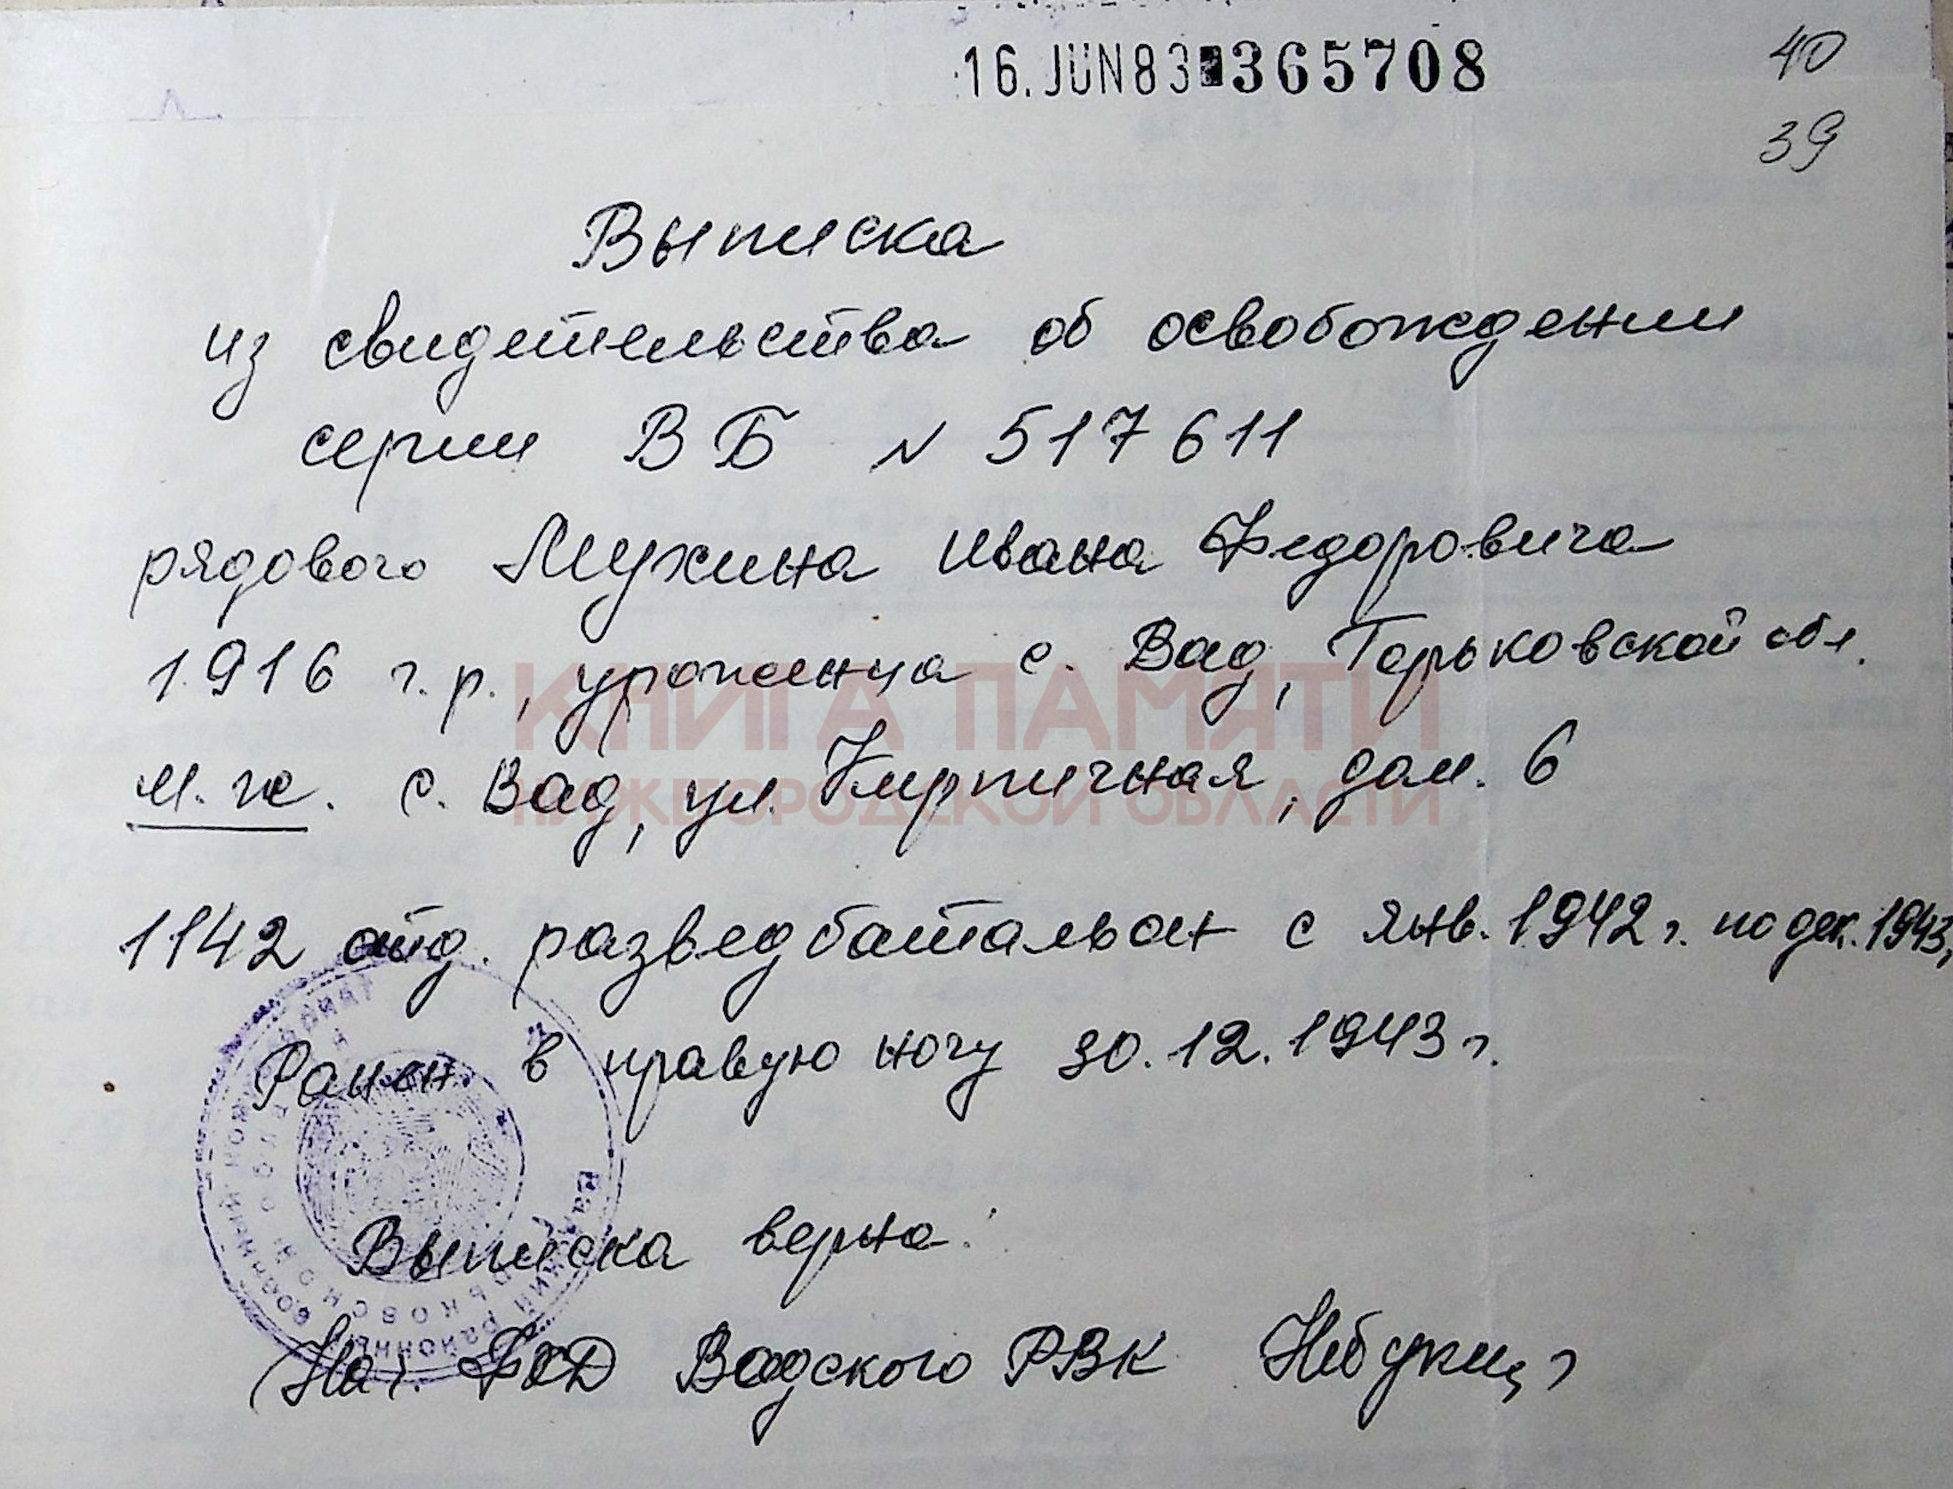 16. JUN 83 365708
40
39
Выписка
из свидетельства об освобождении
серии ВБ N 517611
рядового Мухина Ивана Федоровича
1916 г.р., уроженца с. Вад, Горьковской обл.
КНИГА ПАМЯТИ
м.ж. с. Вад, ул. Кирпичная, дом. 6
НИЖЕГОРОДСКОЙ ОБЛАСТИ
1142 отд. разведбатальон с янв. 1942 г. по дек. 1943г
Ранен в правую ногу 30.12.1943 г.
Выписка верна:
Нач. Вадского РВК